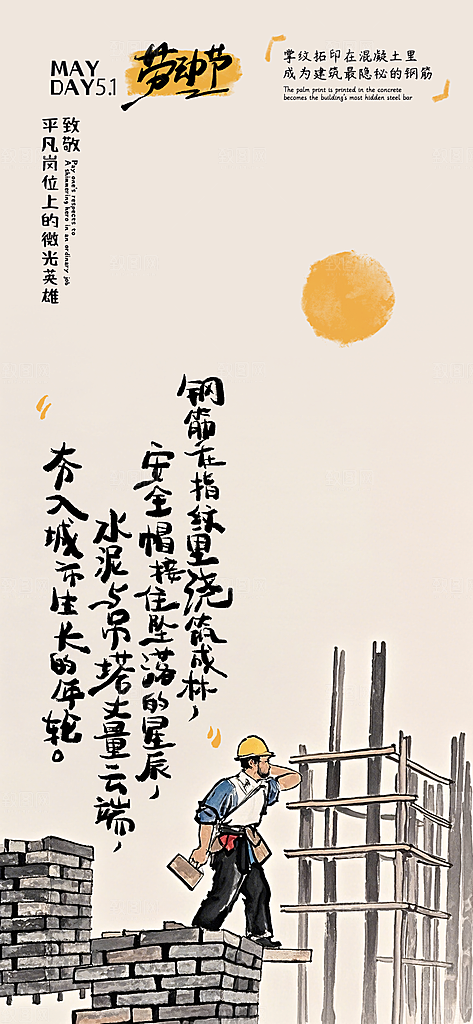 MAY
DAY5.1
劳动节
掌纹拓印在混凝土里
成为建筑最隐秘的钢筋
The palm print is printed in the concrete
becomes the building's most hidden steel bar
致敬
平凡岗位上的微光英雄
Pay one's respects to
A shimmering hero in an ordinary job
钢筋在指纹里浇筑成林，
安全帽接住坠落的星辰，
水泥与吊塔丈量云端，
夯入城市生长的年轮。